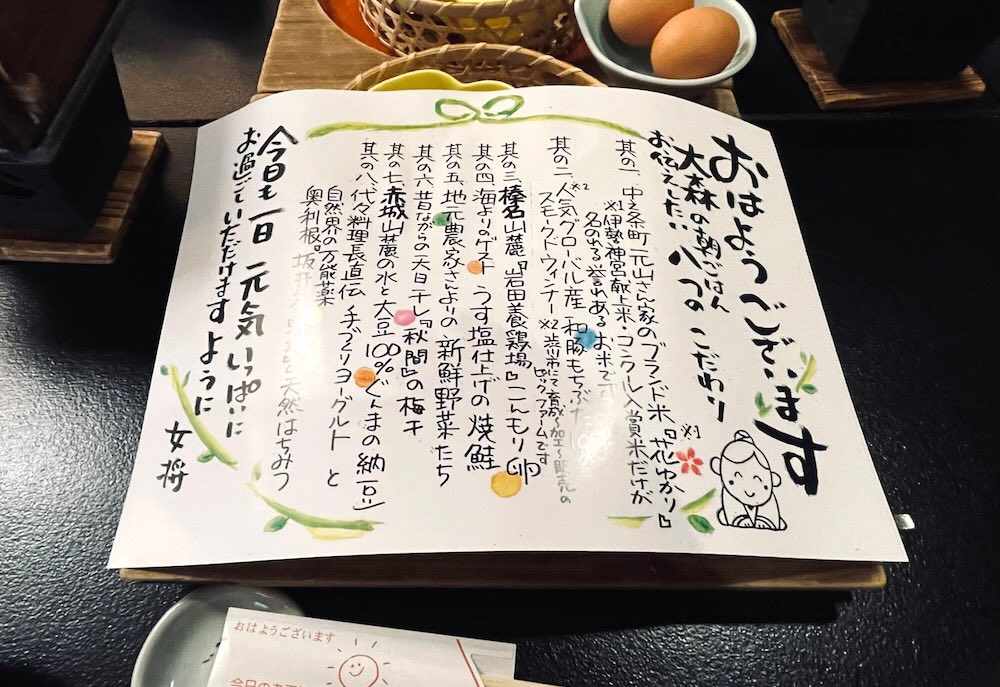 おはようございます
大森の朝ごはん
お伝えしたい 八つの こだわり
其の一、中之条町 元山さん家のブランド米『花ゆかり』※1
※1 伊勢神宮献上米・コンクール入賞米だけが
名のれる誉れある お米で
其の二、人気グローバル産 和豚もちぶた
スモークドウィンナー ※2 渋川市にて育成〜加工〜販売の
ファームです
其の三、榛名山麓『岩田養鶏場』こんもり卵
其の四、海よりのゲスト うす塩仕上げの焼鮭
其の五、地元農家さんよりの 新鮮野菜たち
其の六、昔ながらの天日干し『秋間』の梅干
其の七、赤城山麓の水と大豆100%ぐんまの納豆
其の八、代々料理長直伝 手づくりヨーグルト と
自然界の万能薬
奥利根 天然はちみつ
今日も一日 元気いっぱいに
お過ごしいただけます ように
女将
おはようございます